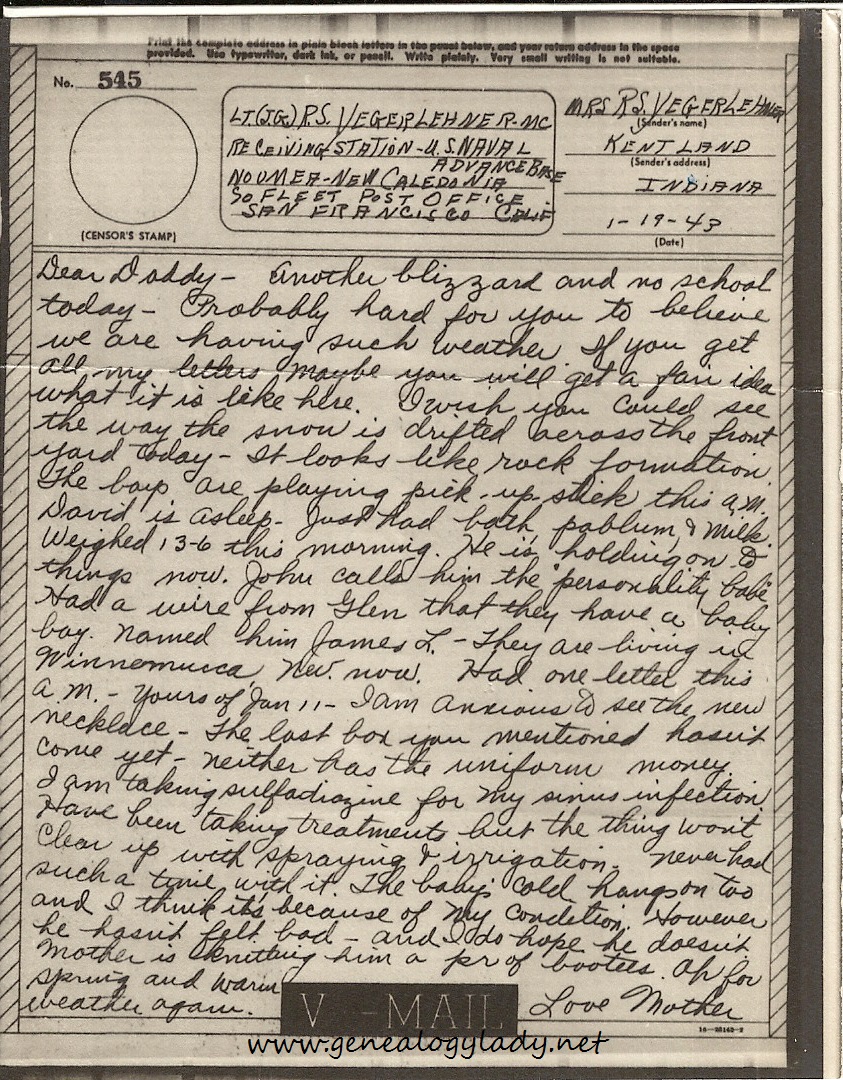 Print the complete address in plain block letters in the panel below, and your return address in the space
provided. Use typewriter, dark ink, or pencil. Write plainly. Very small writing is not suitable.
No. 545
(CENSOR'S STAMP)
LT.(J.G.) R.S. VEGERLEHNER-MC
RECEIVING STATION-U.S. NAVAL
ADVANCE BASE
NOUMEA-NEW CALEDONIA
SO FLEET POST OFFICE
SAN FRANCISCO CALIF
MRS R.S. VEGERLEHNER
(Sender's name)
KENTLAND
(Sender's address)
INDIANA
1-19-43
(Date)
Dear Daddy- Another blizzard and no school
today- Probably hard for you to believe
we are having such weather. If you get
all my letters maybe you will get a fair idea
what it is like here. I wish you could see
the way the snow is drifted across the front
yard today- It looks like rock formation.
The boys are playing pick-up stick this a.m.
David is asleep- Just had bath, pablum, & milk.
Weighed 13-6 this morning. He is holding on to
things now. John calls him the "personality babe"
Had a wire from Glen that they have a baby
boy. named him James L. - They are living in
Winnemucca, Nev. now. Had one letter this
a.m. - Yours of Jan 11 - I am anxious to see the new
necklace - The last box you mentioned hasn't
come yet - neither has the uniform money.
I am taking sulfadiazine for my sinus infection.
Have been taking treatments but the thing won't
clear up with spraying & irrigation. Never had
such a time with it. The baby's cold hangs on too
and I think it's because of my condition. However
he hasn't felt bad - and I do hope he doesn't
Mother is knitting him a pr of bootees. Oh for
spring and warm
weather again.
Love Mother
V - MAIL
16-28143-2
www.genealogylady.net